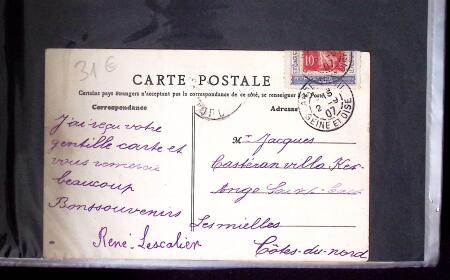 31€
10
CARTE POSTALE
Certains pays étrangers n'acceptant pas la correspondance de ce côté, se renseigner à la Poste
Correspondance
Adresse
2 -9
07
SEINE ET OISE
J'ai reçu votre
gentille carte et
vous remercie
beaucoup
Bons souvenirs
René Lescalier
Mr Jacques
Castéran villa Ker-
Ango
Les mielles
Côtes-du-nord